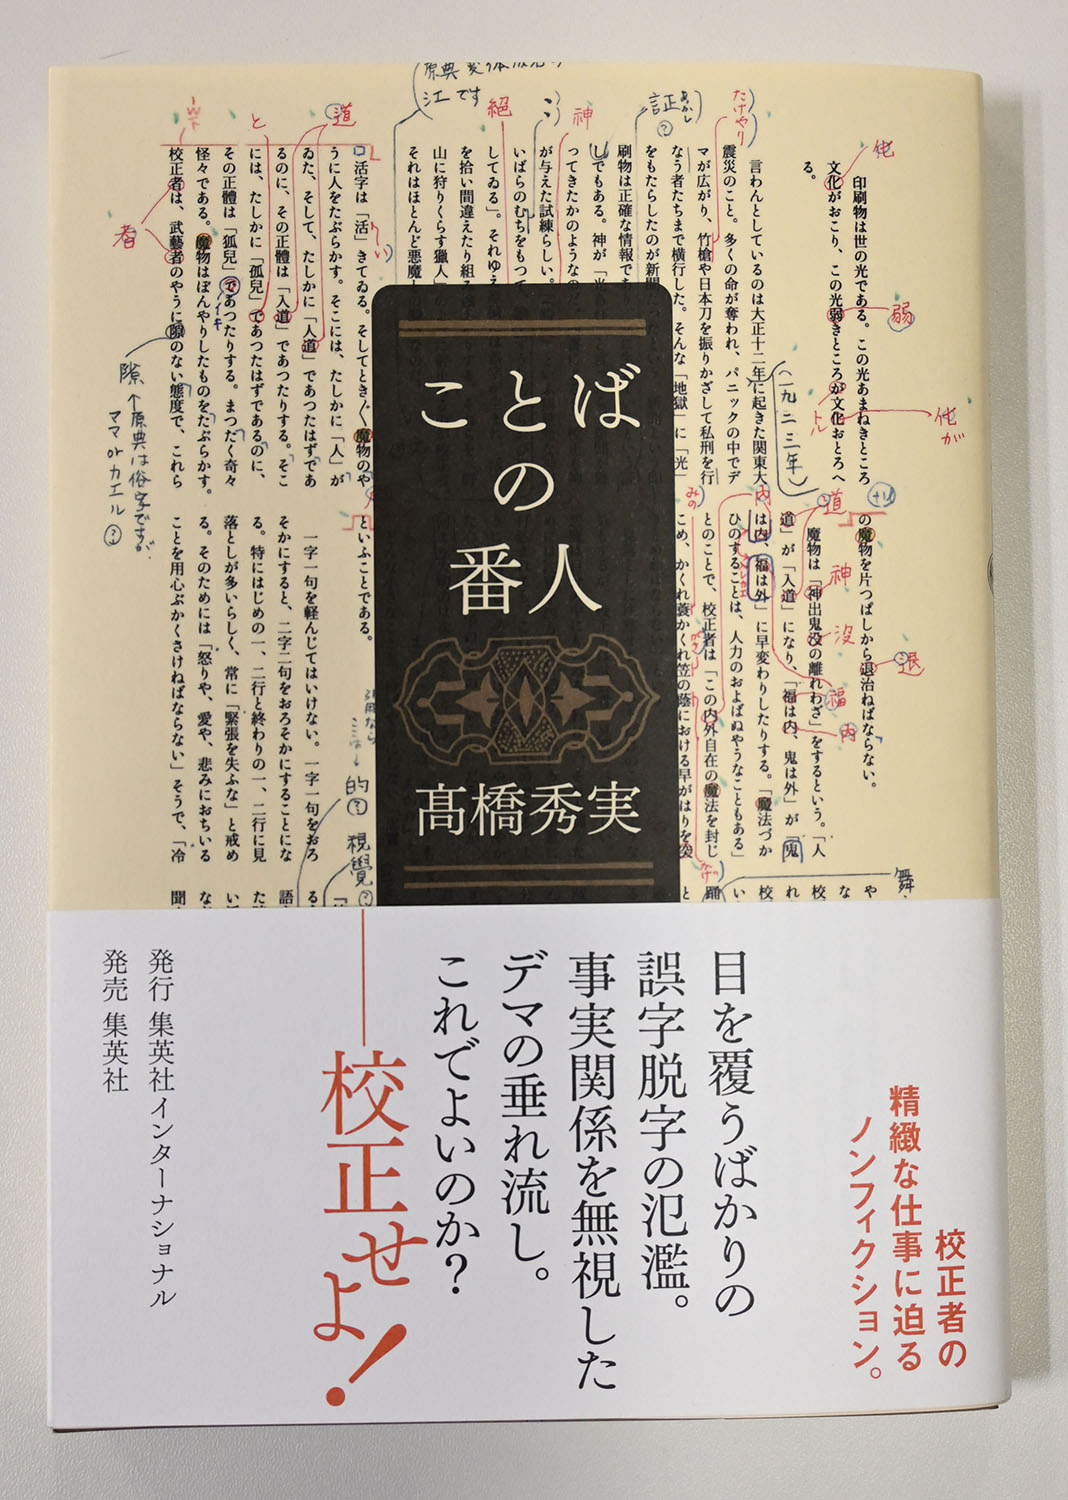 ことば
の
番人
髙橋秀実
印刷物は世の光である。この光あまねきところ
文化がおこり、この光弱きところが文化おとろへ
る。
言わんとしているのは大正十二年に起きた関東大
震災のこと。多くの命が奪われ、パニックの中でデ
マが広がり、竹槍や日本刀を振りかざして私刑を行
なう者たちまで横行した。そんな「地獄」に「光」
をもたらしたのが新聞
刷物は正確な情報であ
しでもある。神が「光
ってきたかのようなのだ
が与えた試練らしい。
いばらのむちをもつて、
してゐる」。それゆえ
を拾い間違えたり組
山に狩りくらす獵人」の
それはほとんど悪魔
活字は「活」きてゐる。そしてとき〱魔物のや
うに人をたぶらかす。そこには、たしかに「人」が
ゐた、そして、たしかに「人道」であつたはずであ
るのに、その正體は「入道」であつたりする。そこ
には、たしかに「孤兒」であつたはずであるのに、
その正體は「狐兒」であつたりする。まつたく奇々
怪々である。魔物はぼんやりしたものをたぶらかす。
校正者は、武藝者のやうに隙のない態度で、これら
の魔物を片つぱしから退治ねばならない。
魔物は「神出鬼没の離れわざ」をするという。「人
道」が「入道」になり、「福は内、鬼は外」が「鬼
は内、福は外」に早変わりしたりする。「魔法づか
ひのすることは、人力のおよばぬやうなこともある」
とのことで、校正者は「この内外自在の魔法を封じ
こめ、かくれ蓑かくれ笠の蔭における早がはりを突
といふことである。
一字一句を軽んじてはいけない。一字一句をおろ
そかにすると、二字二句をおろそかにすることにな
る。特にはじめの一、二行と終わりの一、二行に見
落としが多いらしく、常に「緊張を失ふな」と戒め
る。そのためには「怒りや、愛や、悲みにおちいる
ことを用心ぶかくさけねばならない」そうで、「冷
江です
絕
神
証
たけやり
化
弱
化が
トル
(一九二三年)
道
と
者
イキ
隙←原典は俗字ですが、
ママorカエル?
みの
内
道
トリ
神
没
福
内
退
的?
視覺?
舞
校正者の
精緻な仕事に迫る
ノンフィクション。
目を覆うばかりの
誤字脱字の氾濫。
事実関係を無視した
デマの垂れ流し。
これでよいのか?
——校正せよ!
発行 集英社インターナショナル
発売 集英社